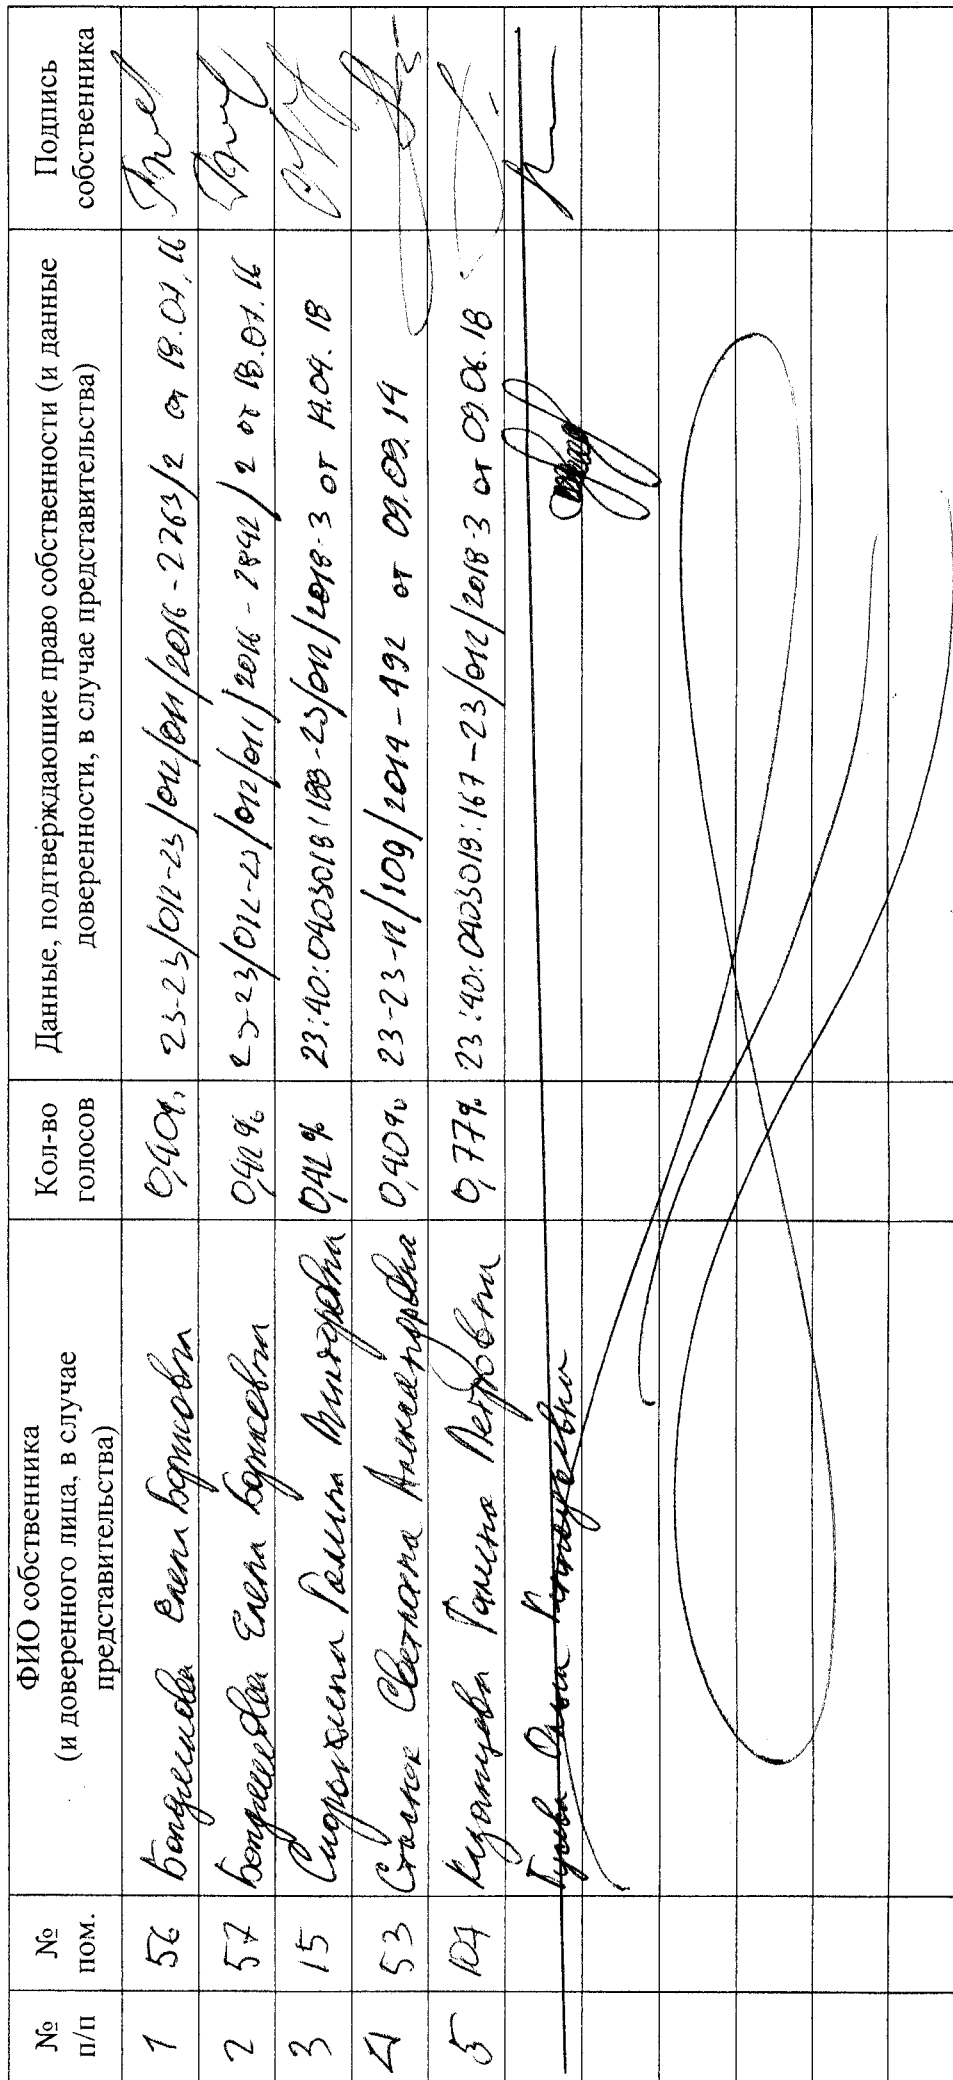 № п/п
№ пом.
ФИО собственника
(и доверенного лица, в случае
представительства)
Кол-во
голосов
Данные, подтверждающие право собственности (и данные
доверенности, в случае представительства)
Подпись
собственника
1 56 Елена Борисовна 0,40%
23-23/012-23/012/011/2016-2763/2 от 18.07.16
2 57 Елена Борисовна 0,42%
23-23/012-23/012/011/2016-2842/2 от 18.07.16
3 15 Галина Викторовна 0,42%
23:40:0403019:188-23/012/2018-3 от 14.04.18
4 53 Светлана Александровна 0,40%
23-23-12/109/2014-492 от 09.09.14
5 104 Казанцева Галина Петровна 0,77%
23:40:0403019:167-23/012/2018-3 от 09.06.18